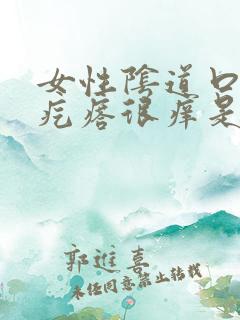 女性陰道口
疙瘩很痒是
郭進喜
未经同意禁止转载